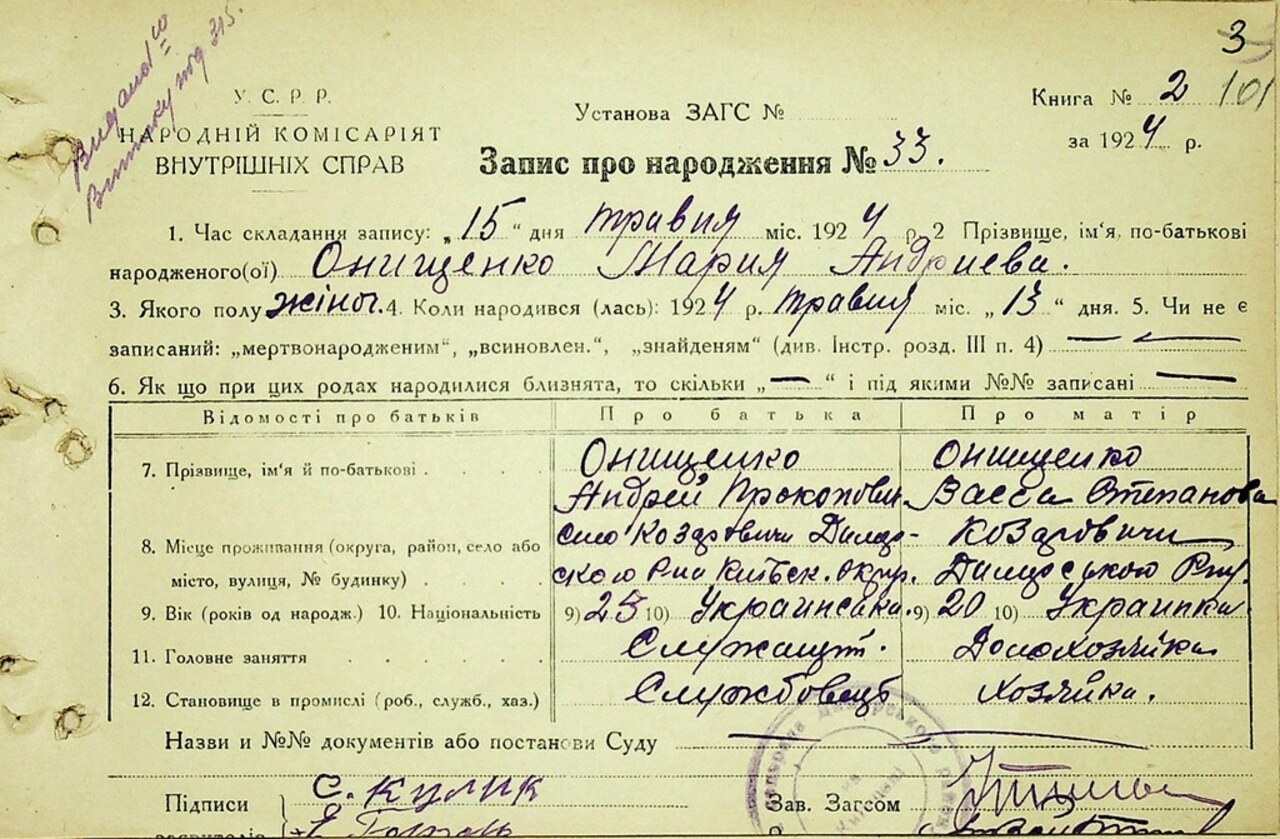 Видано
Виписку под 315.
3
101
У. С. Р. Р.
НАРОДНІЙ КОМІСАРІЯТ
ВНУТРІШНІХ СПРАВ
Установа ЗАГС №
Книга № 2
за 1924 р.
Запис про народження № 33.
1. Час складання запису: „15“ дня травня міс. 1924 р. 2 Прізвище, ім'я, по-батькові
народженого(ої) Онищенко Мария Андриева.
3. Якого полу жіноч. 4. Коли народився (лась): 1924 р. травня міс. „13“ дня. 5. Чи не є
записаний: „мертвонародженим“, „всиновлен.“, „знайденям“ (див. Інстр. розд. III п. 4) —
6. Як що при цих родах народилися близнята, то скільки „—“ і під якими №№ записані —
Відомості про батьків Про батька Про матір
7. Прізвище, ім'я й по-батькові Онищенко Онищенко
Андрей Прокопович Васса Степанова
8. Місце проживання (округа, район, село або село Козаровичи Димер- Козаровичи
місто, вулиця, № будинку) ского Рна Київск. Окр. Димерського Рну.
9. Вік (років од народж.) 10. Національність 9) 25 10) Украинська. 9) 20 10) Украинка
11. Головне заняття Служащий. Домохозяйка
12. Становище в промислі (роб., служб., хаз.) Службовець Хозяйка.
Назви и №№ документів або постанови Суду —
Підписи С. Кулик Зав. Загсом
заявителів